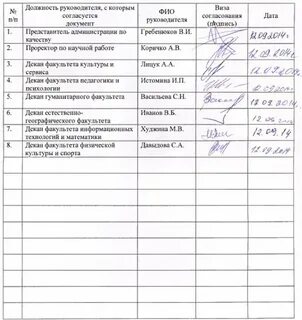 № п/п
Должность руководителя, с которым согласуется документ
ФИО руководителя
Виза согласования (подпись)
Дата
1. Представитель администрации по качеству Гребешюков В.И. 12.09.2014г
2. Проректор по научной работе Коричко А.В. 12.09.2014г
3. Декан факультета культуры и сервиса Лицук А.А. 12.09.2014
4. Декан факультета педагогики и психологии Истомина И.П.
5. Декан гуманитарного факультета Васильева С.Н. 12.09.2014г
6. Декан естественно-географического факультета Иванов В.Б.
7. Декан факультета информационных технологий и математики Худжина М.В. 12.09.14
8. Декан факультета физической культуры и спорта Давыдова С.А. 12.09.2014